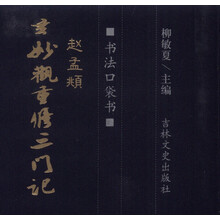 玄妙觀重脩三門記
赵孟頫
■书法口袋书■
柳敏夏/主编
吉林文史出版社